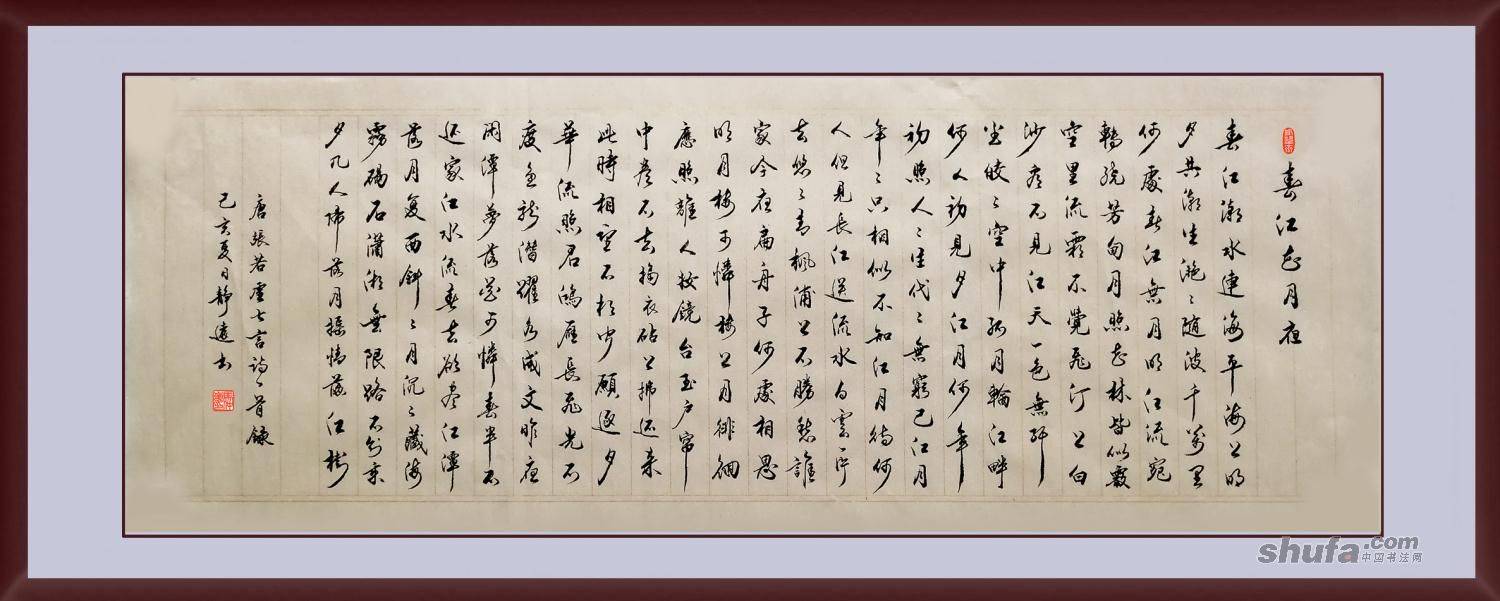 春江花月夜
春江潮水連海平海上明
月共潮生滟〻随波千萬里
何處春江無月明江流宛
轉繞芳甸月照花林皆似霰
空里流霜不覺飛汀上白
沙看不見江天一色無纤
塵皎〻空中孤月輪江畔
何人初見月江月何年
初照人〻生代〻無窮已江月
年〻只相似不知江月待何
人但見長江送流水白雲一片
去悠〻青楓浦上不勝愁誰
家今夜扁舟子何處相思
明月樓可憐樓上月徘徊
應照離人妝鏡台玉户帘
中卷不去搗衣砧上拂还来
此時相望不相聞願逐月
華流照君鴻雁長飛光不
度魚龍潛躍水成文昨夜
閑潭夢落花可憐春半不
还家江水流春去欲尽江潭
落月复西斜〻月沉〻藏海
霧碣石瀟湘無限路不知乘
月几人歸落月摇情滿江樹
唐張若虛七言詩一首錄
己亥夏日靜遠书
shufa.com
中国书法网